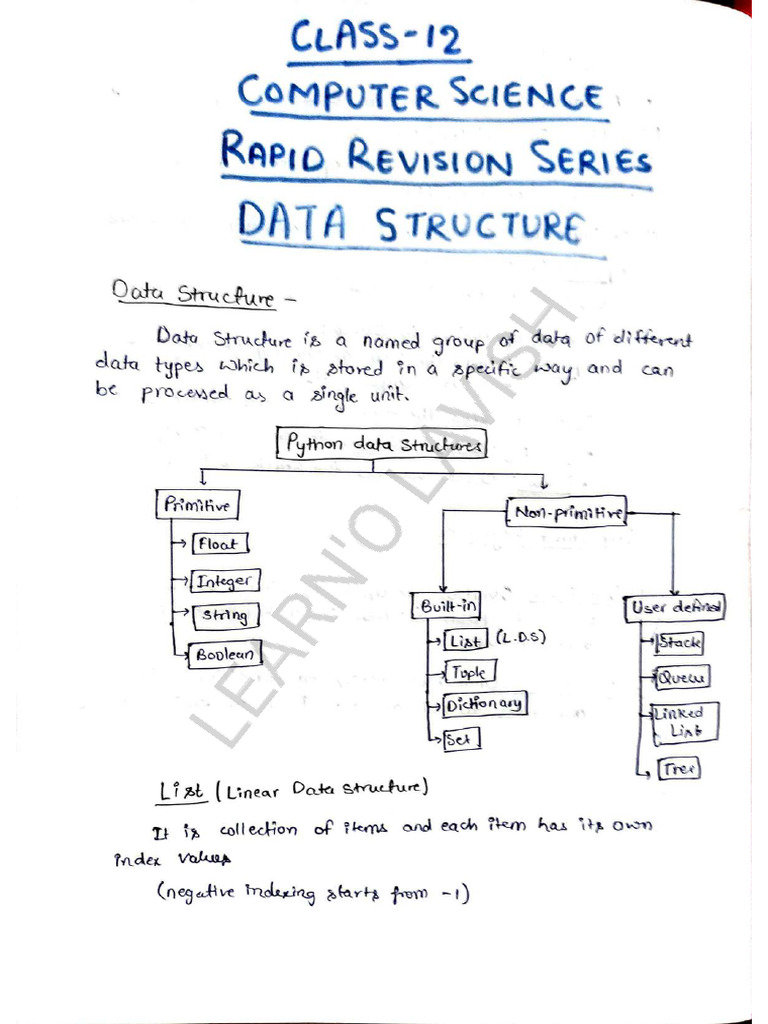 CLASS-12
COMPUTER SCIENCE
RAPID REVISION SERIES
DATA STRUCTURE
Data Structure -
Data Structure is a named group of data of different
data types which is stored in a specific way and can
be processed as a single unit.
Python data structures
Primitive
Non-primitive
Float
Integer
String
Boolean
Built-in
List (L.D.S)
Tuple
Dictionary
Set
User defined
Stack
Queue
Linked
List
Tree
List (Linear Data Structure)
It is collection of items and each item has its own
index values
(negative indexing starts from -1)
LEARN'O LAVISH